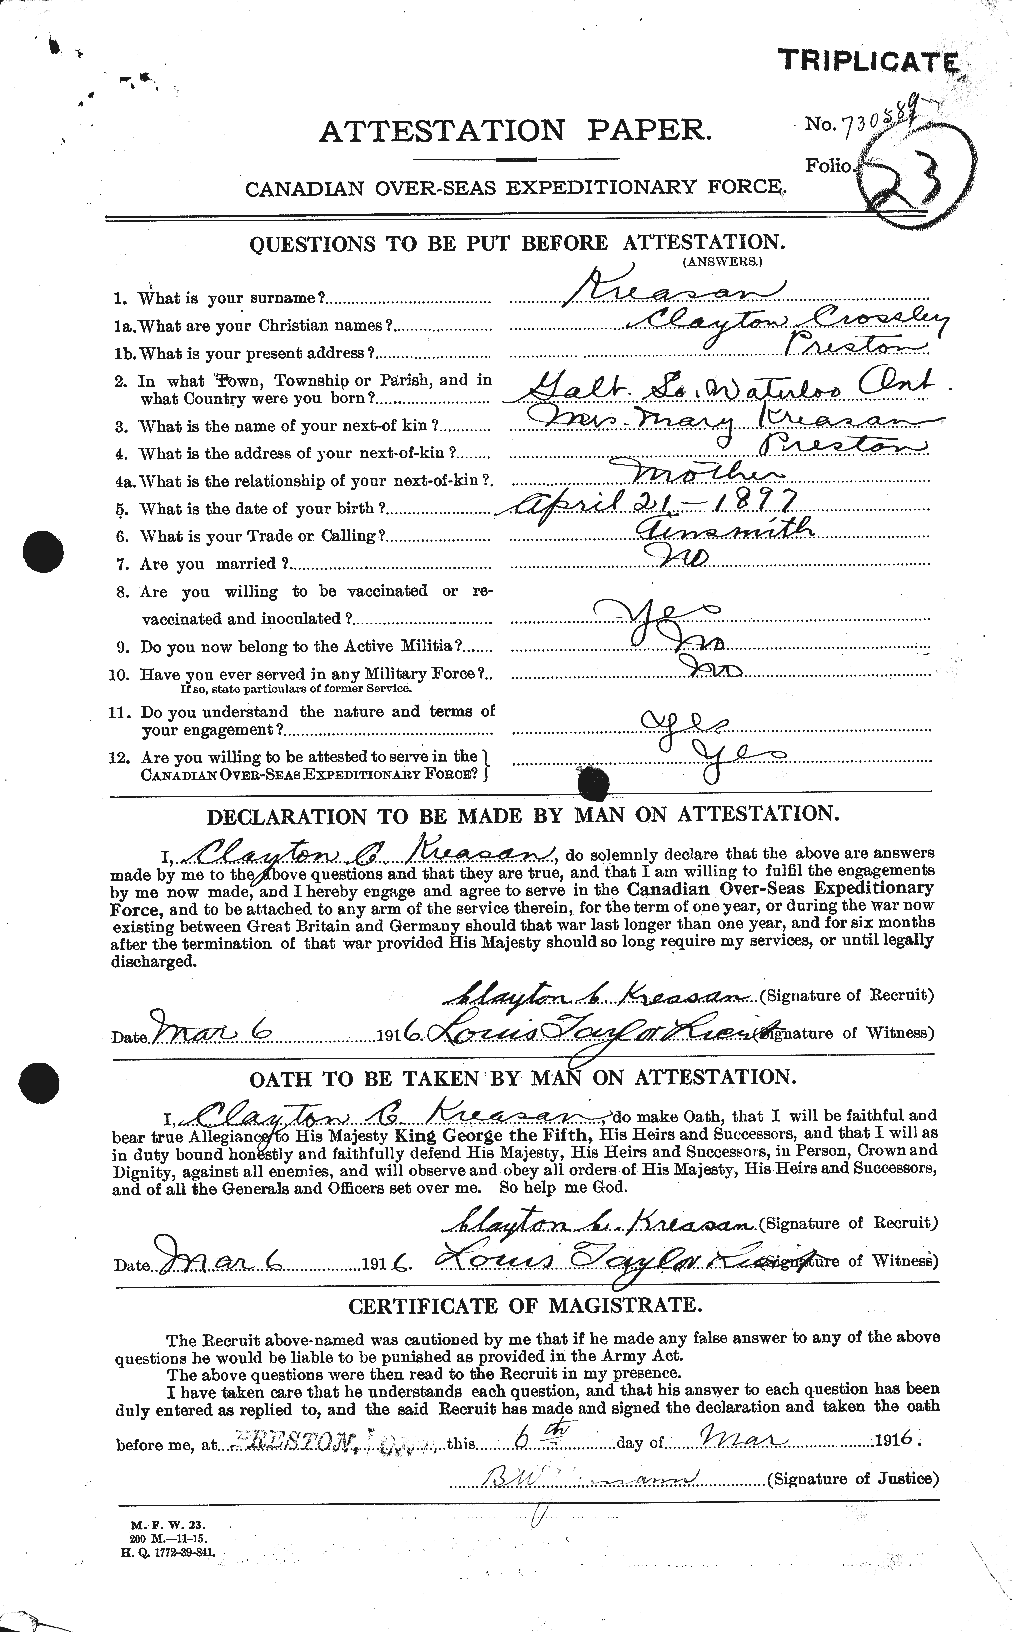 TRIPLICATE
ATTESTATION PAPER.
No. 730589
Folio. 23
CANADIAN OVER-SEAS EXPEDITIONARY FORCE.
QUESTIONS TO BE PUT BEFORE ATTESTATION.
(ANSWERS.)
1. What is your surname? Kreasan
1a. What are your Christian names? Clayton Crossley
1b. What is your present address? Preston
2. In what Town, Township or Parish, and in
what Country were you born? Galt. So. Waterloo Ont.
3. What is the name of your next-of kin? Mrs. Mary Kreasan
4. What is the address of your next-of-kin? Preston
4a. What is the relationship of your next-of-kin? Mother
5. What is the date of your birth? April 21 - 1897
6. What is your Trade or Calling? Tinsmith
7. Are you married? No
8. Are you willing to be vaccinated or re-
vaccinated and inoculated? Yes
9. Do you now belong to the Active Militia? No
10. Have you ever served in any Military Force? No
If so, state particulars of former Service.
11. Do you understand the nature and terms of
your engagement? Yes
12. Are you willing to be attested to serve in the
CANADIAN OVER-SEAS EXPEDITIONARY FORCE? Yes
DECLARATION TO BE MADE BY MAN ON ATTESTATION.
I, Clayton C. Kreasan, do solemnly declare that the above are answers
made by me to the above questions and that they are true, and that I am willing to fulfil the engagements
by me now made, and I hereby engage and agree to serve in the Canadian Over-Seas Expeditionary
Force, and to be attached to any arm of the service therein, for the term of one year, or during the war now
existing between Great Britain and Germany should that war last longer than one year, and for six months
after the termination of that war provided His Majesty should so long require my services, or until legally
discharged.
Clayton C. Kreasan (Signature of Recruit)
Date Mar 6 1916. Louis Taylor Lieut (Signature of Witness)
OATH TO BE TAKEN BY MAN ON ATTESTATION.
I, Clayton C. Kreasan, do make Oath, that I will be faithful and
bear true Allegiance to His Majesty King George the Fifth, His Heirs and Successors, and that I will as
in duty bound honestly and faithfully defend His Majesty, His Heirs and Successors, in Person, Crown and
Dignity, against all enemies, and will observe and obey all orders of His Majesty, His Heirs and Successors,
and of all the Generals and Officers set over me. So help me God.
Clayton C. Kreasan (Signature of Recruit)
Date Mar 6 1916. Louis Taylor Lieut (Signature of Witness)
CERTIFICATE OF MAGISTRATE.
The Recruit above-named was cautioned by me that if he made any false answer to any of the above
questions he would be liable to be punished as provided in the Army Act.
The above questions were then read to the Recruit in my presence.
I have taken care that he understands each question, and that his answer to each question has been
duly entered as replied to, and the said Recruit has made and signed the declaration and taken the oath
before me, at PRESTON, this 6th day of Mar 1916.
(Signature of Justice)
M. F. W. 23.
200 M.—11-15.
H. Q. 1772-39-841.